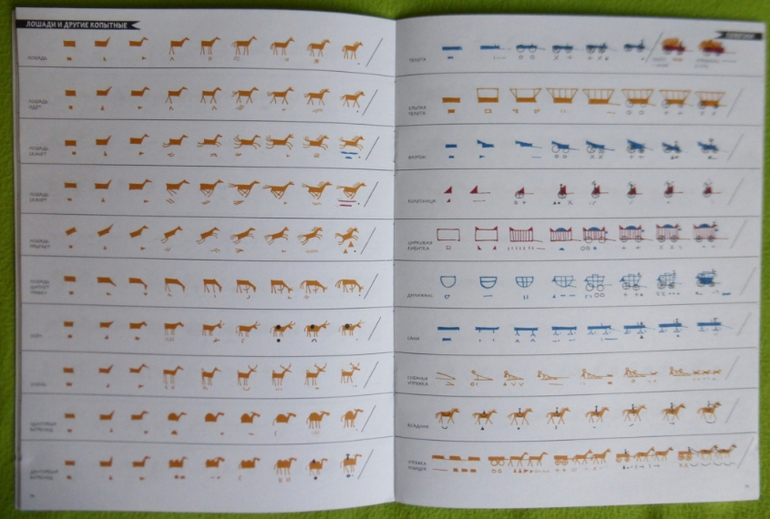 ЛОШАДИ И ДРУГИЕ КОПЫТНЫЕ
ЛОШАДЬ
ЛОШАДЬ
ИДЁТ
ЛОШАДЬ
СКАЧЕТ
ЛОШАДЬ
СКАЧЕТ
ЛОШАДЬ
ПРЫГАЕТ
ЛОШАДЬ
ЩИПЛЕТ
ТРАВКУ
ОСЁЛ
ОЛЕНЬ
ОДНОГОРБЫЙ
ВЕРБЛЮД
ДВУГОРБЫЙ
ВЕРБЛЮД
ПОВОЗКИ
ТЕЛЕГА
ТЕЛЕГА
ФАЭТОН
КОЛЕСНИЦА
ЦИРКОВАЯ
КИБИТКА
ДИЛИЖАНС
САНИ
СОБАЧЬЯ
УПРЯЖКА
ВСАДНИК
УПРЯЖКА
ЛОШАДЕЙ